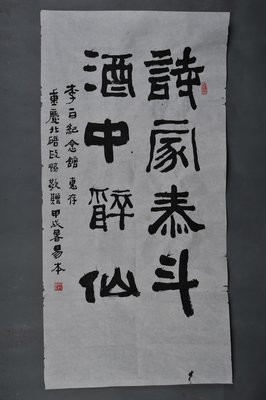 詩家泰斗
酒中醉仙
李白紀念館惠存
重慶北碚段惕敬贈甲戌暑易本